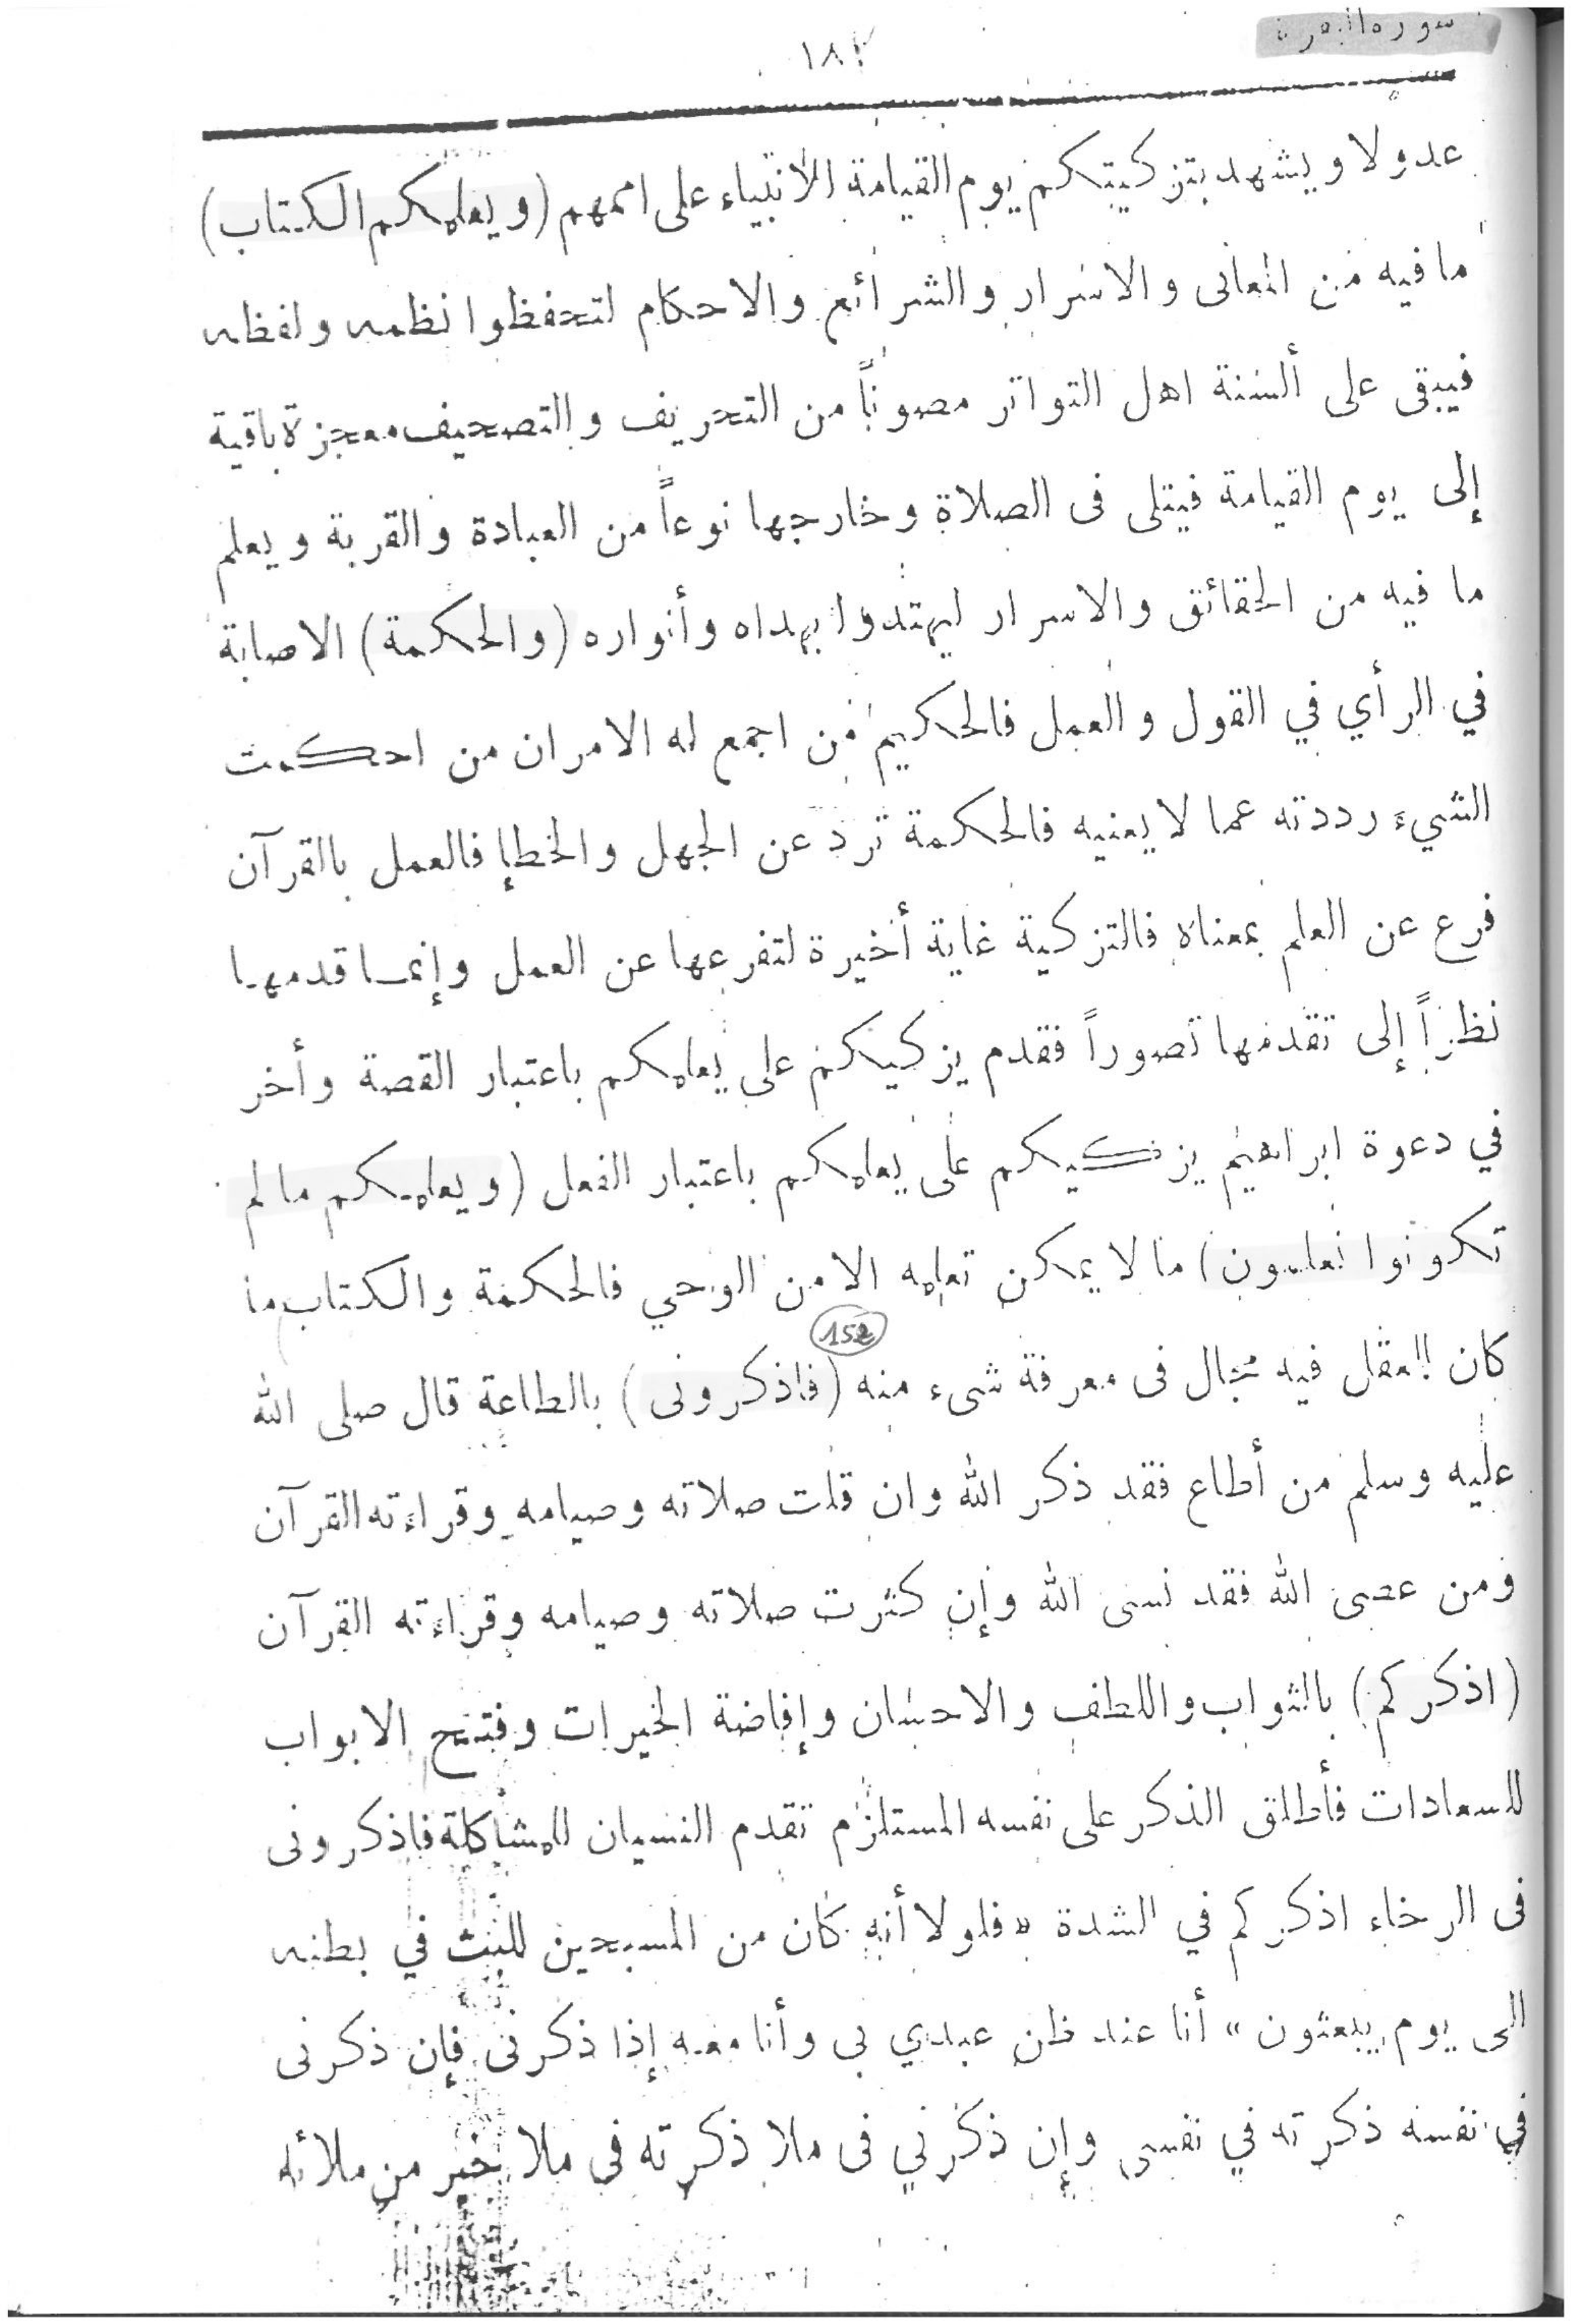 سورة البقرة
١٨٢
عدولا ويشهد بتزكيتكم يوم القيامة الأنبياء على اممهم (ويعلمكم الكتاب)
ما فيه من المعانى والاسرار والشرائع والاحكام لتحفظوا نظمه ولفظه
فيبقى على ألسنة اهل التواتر مصوناً من التحريف والتصحيف معجزة باقية
إلى يوم القيامة فيتلى فى الصلاة وخارجها نوعاً من العبادة والقربة ويعلم
ما فيه من الحقائق والاسرار ليهتدوا بهداه وأنواره (والحكمة) الاصابة
في الرأي في القول والعمل فالحكيم من اجمع له الامران من احكمت
الشيء رددته عما لا يعنيه فالحكمة ترد عن الجهل والخطإ فالعمل بالقرآن
فرع عن العلم بمعناه فالتزكية غاية أخيرة لتفرعها عن العمل وإنما قدمها
نظراً إلى تقدمها تصوراً فقدم يزكيكم على يعلمكم باعتبار القصة وأخر
في دعوة ابراهيم يزكيكم على يعلمكم باعتبار الفعل (ويعلمكم ما لم
تكونوا تعلمون) ما لا يمكن تعلمه الا من الوحي فالحكمة والكتاب ما
152
كان للعقل فيه مجال فى معرفة شىء منه (فاذكرونى) بالطاعة قال صلى الله
عليه وسلم من أطاع فقد ذكر الله وان قلت صلاته وصيامه وقراءته القرآن
ومن عصى الله فقد نسى الله وإن كثرت صلاته وصيامه وقراءته القرآن
(اذكركم) بالثواب واللطف والاحسان وإفاضة الخيرات وفتح الابواب
للسعادات فأطلق الذكر على نفسه المستلزم تقدم النسيان للمشاكلة فاذكرونى
فى الرخاء اذكركم في الشدة «فلولا أنه كان من المسبحين للبث في بطنه
الى يوم يبعثون» أنا عند ظن عبدي بى وأنا معه إذا ذكرنى فإن ذكرنى
في نفسه ذكرته في نفسى وإن ذكرني فى ملا ذكرته فى ملا خير من ملائه